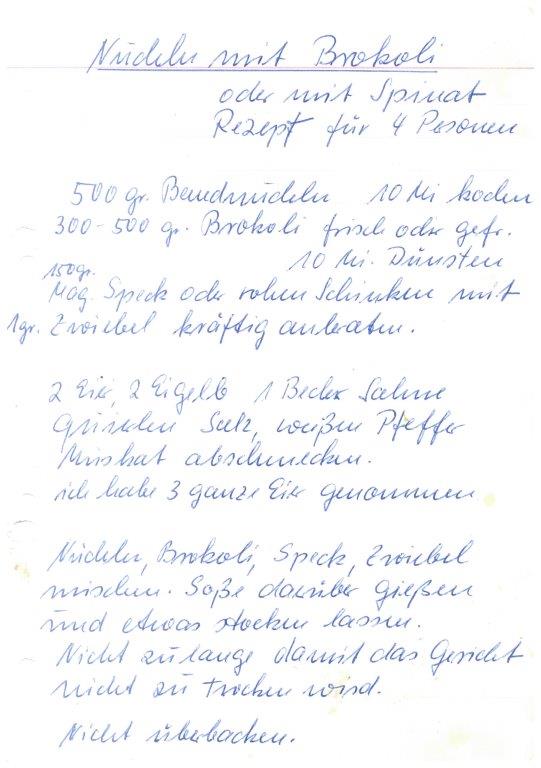 Nudeln mit Brokoli
oder mit Spinat
Rezept für 4 Personen
500 gr. Bandnudeln 10 Mi kochen
300-500 gr. Brokoli frisch oder gefr.
10 Mi. Dünsten
150gr.
Mag. Speck oder rohen Schinken mit
1gr. Zwiebel kräftig anbraten.
2 Eier, 2 Eigelb 1 Becher Sahne
Salz, weißen Pfeffer
Muskat abschmecken.
ich habe 3 ganze Eier genommen
Nudeln, Brokoli, Speck, Zwiebel
mischen. Soße darüber gießen
und etwas stocken lassen.
Nicht zulange damit das Gericht
nicht zu trocken wird.
Nicht überbacken.